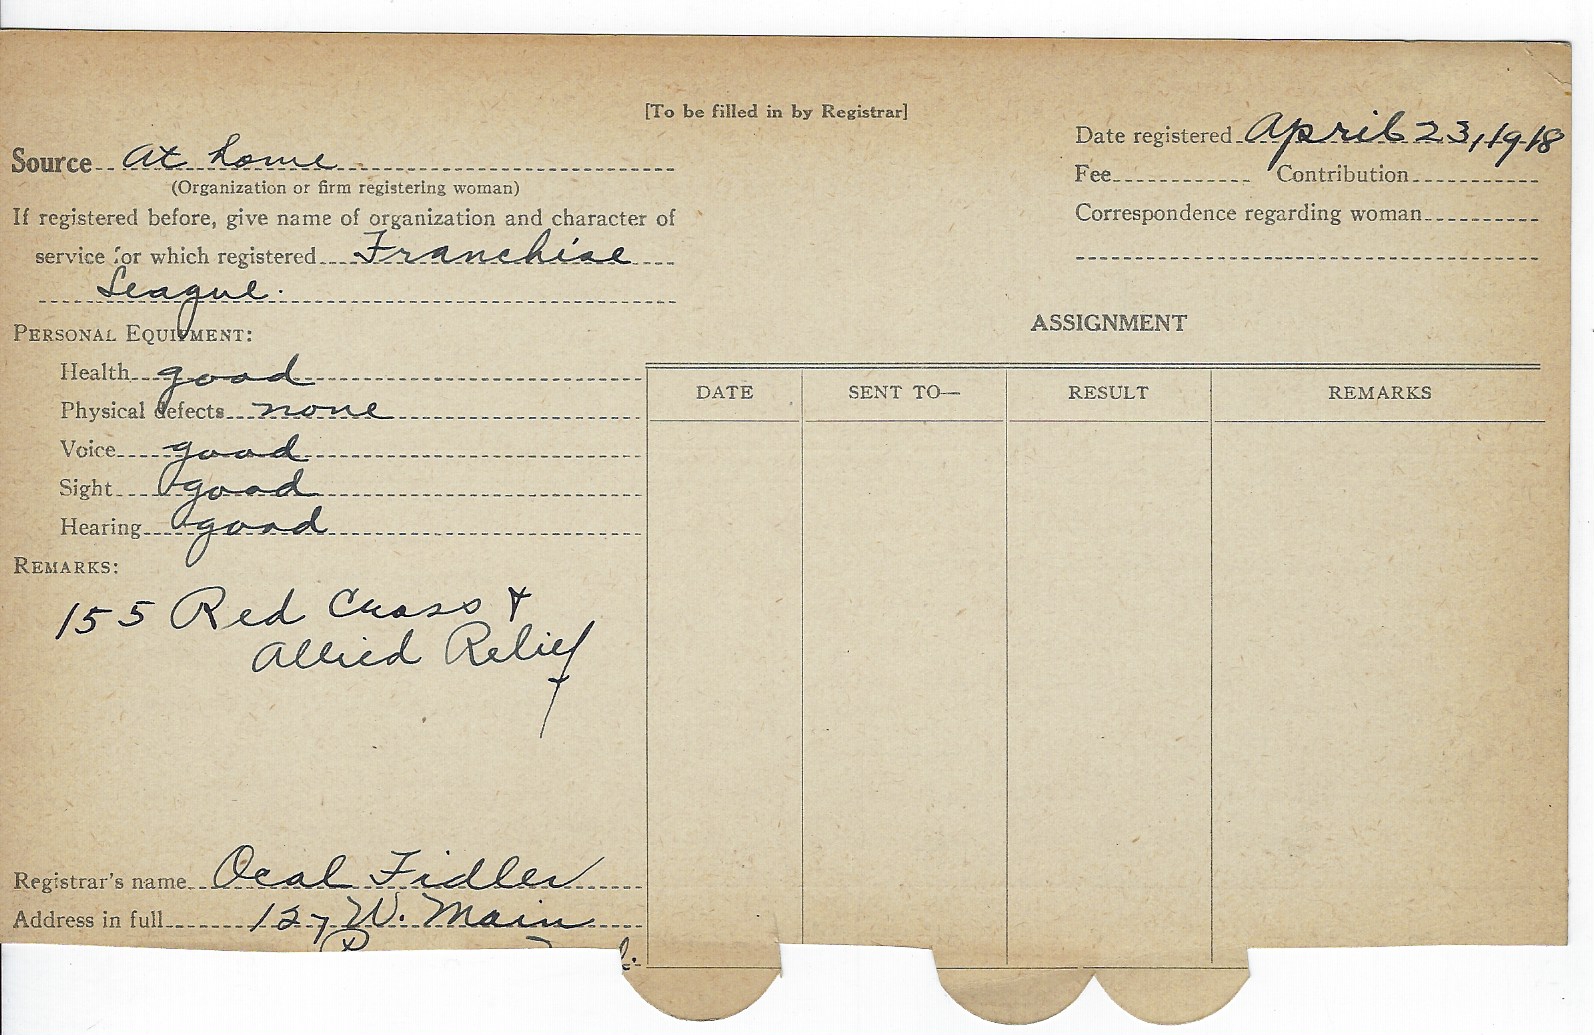 [To be filled in by Registrar]
Date registered April 23, 1918
Source At home
(Organization or firm registering woman)
Fee Contribution
If registered before, give name of organization and character of
Correspondence regarding woman
service for which registered Franchise
League.
PERSONAL EQUIPMENT:
ASSIGNMENT
Health good
DATE SENT TO— RESULT REMARKS
Physical defects none
Voice good
Sight good
Hearing good
REMARKS:
155 Red Cross +
Allied Relief
Registrar's name Ocal Fidler
Address in full 127 W. Main